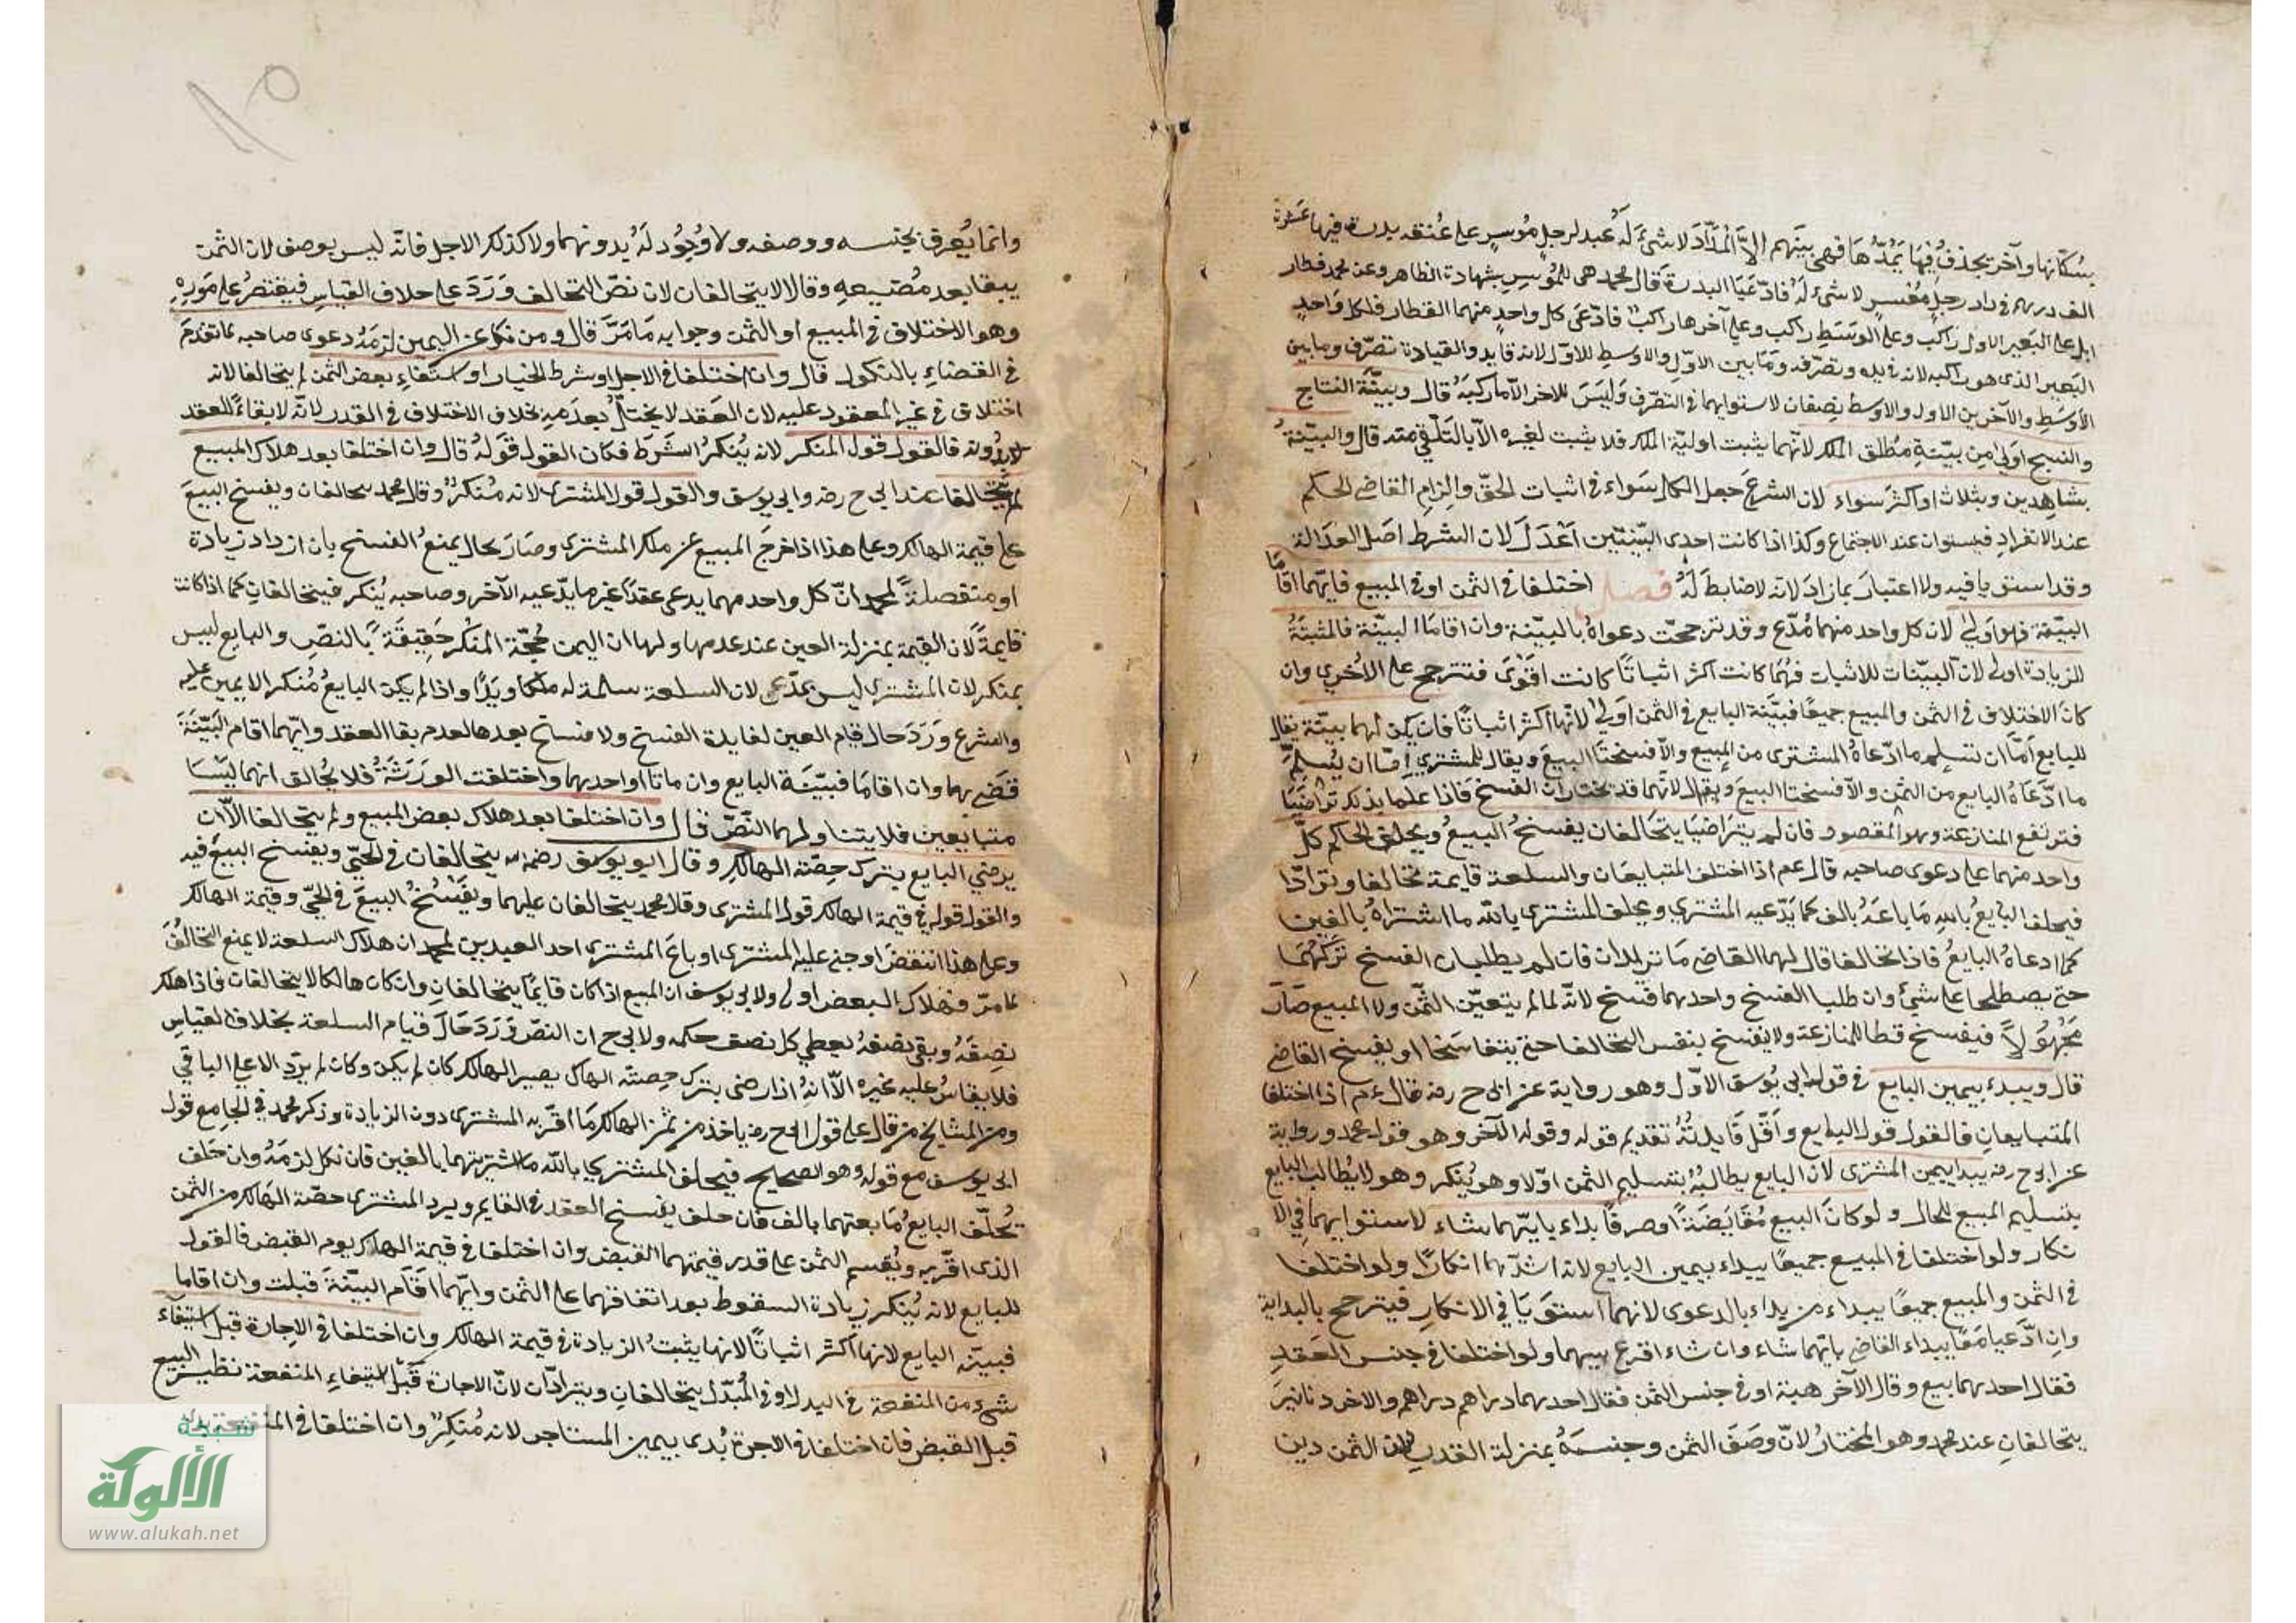 بسكانها وآخر يجذف فيها يمدها فهى بينهم الا الملاد لا شئ له عبد لرجل موسر على عنقه بدرة فيها عشرة
الف درهم فى دار رجل مفسر لا شئ له فادعيا البدرة قال محمد هى للموسر بشهادة الظاهر وعن محمد قطار
ابل على البعير الاول راكب وعلى الوسط راكب وعلى آخرها راكب فادعى كل واحد منهما القطار فلكل واحد
البعير الذى هو راكبه لانه فى يده وتصرفه وما بين الاول والاوسط للاول لانه قايد والقيادة تصرف وما بين
الاوسط والآخر بين الاول والاوسط نصفان لاستوايهما فى التصرف وليس للاخر الا ما ركبه قال وبينة النتاج
والنسج اولى من بينة مطلق الملك لانهما يثبت اولية الملك فلا يثبت لغيره الا بالتلقى منه قال والبينة
بشاهدين وبثلاث او اكثر سواء لان الشرع جعل الكل سواء فى اثبات الحق والزام القاضى الحكم
عند الانفراد فيستوان عند الاجتماع وكذا اذا كانت احدى البينتين اعدل لان الشرط اصل العدالة
وقد استويا فيه ولا اعتبار بما زاد لانه لا ضابط له فصل اختلفا فى الثمن او فى المبيع فايهما اقاما
البينة فهو اولى لان كل واحد منهما مدع وقد ترجحت دعواه بالبينة وان اقاما البينة فالمثبتة
للزيادة اولى لان البينات للاثبات فهما كانت اكثر اثباتا كانت اقوى فتترجح على الاخرى وان
كان الاختلاف فى الثمن والمبيع جميعا فبينة البايع فى الثمن اولى لانها اكثر اثباتا فان يكن لهما بينة يقال
للبايع اما ان تسلم ما ادعاه المشترى من المبيع والا فسختا البيع ويقال للمشترى اما ان يسلم
ما ادعاه البايع من الثمن والا فسختا البيع ويقال لانهما قد يختاران الفسخ فاذا علما بذلك تراضيا
فترتفع المنازعة وهو المقصود فان لم يتراضيا يتحالفان يفسخ البيع ويحلف الحاكم كل
واحد منهما على دعوى صاحبه قال عم اذا اختلف المتبايعان والسلعة قايمة تحالفا وترادا
فيحلف البايع بالله ما باعه بالف كما يدعيه المشترى ويحلف المشترى بالله ما اشتراه بالفين
كما ادعاه البايع فاذا تحالفا قال لهما القاضى ما تريدان فان لم يطلبان الفسخ تركهما
حتى يصطلحا على شئ وان طلبا الفسخ واحدهما فسخ لانه لما لم يتعين الثمن ولا المبيع صار
مجهولا فيفسخ قطا للمنازعة ولا يفسخ بنفس التحالفا حتى يتفاسخا او يفسخ القاضى
قال ويبدء بيمين البايع فى قول ابى يوسف الاول وهو رواية عن ابى ح رضه قال عم اذا اختلفا
المتبايعان فالقول قول البايع واقل فايدته تقديم قوله وقوله الآخر وهو قول محمد ورواية
عن ابى ح رضه يبدا بيمين المشترى لان البايع يطالبه بتسليم الثمن اولا وهو ينكر وهو لا يطالب البايع
بتسليم المبيع للحال ولو كان البيع مقايضة او صرفا بداء بايهما شاء لاستوايهما فى الا
نكار ولو اختلفا فى المبيع جميعا يبداء بيمين البايع لانه اشدهما انكارا ولو اختلفا
فى الثمن والمبيع جميعا يبداء من بداء بالدعوى لانهما استويا فى الانكار فيترجح بالبداية
وان ادعيا معا يبداء القاضى بايهما شاء وان شاء اقرع بينهما ولو اختلفا فى جنس العقد
فقال احدهما بيع وقال الآخر هبة او فى جنس الثمن فقال احدهما دراهم دراهم والاخر دنانير
يتحالفان عند محمد وهو المختار لان وصف الثمن وجنسه بمنزلة القدر لان الثمن دين
وانما يعرف بجنسه ووصفه ولا وجود له بدونهما ولا كذلك الاجل فانه ليس بوصف لان الثمن
يبقا بعد مضيه وقالا لا يتحالفان لان نص التحالف ورد على خلاف القياس فيقتصر على مورده
وهو الاختلاف فى المبيع او الثمن وجوابه ما مر قال ومن نكل عن اليمين لزمه دعوى صاحبه لما تقدم
فى القضاء بالنكول قال وان اختلفا فى الاجل او شرط الخيار او استفاء بعض الثمن لم يتحالفا لانه
اختلاف فى غير المعقود عليه لان العقد لا يختل بعدمه بخلاف الاختلاف فى القدر لانه لا بقاء للعقد
بدونه فالقول قول المنكر لانه ينكر الشرط فكان القول قوله قال وان اختلفا بعد هلاك المبيع
لم يتحالفا عند ابى ح رضه وابى يوسف والقول قول المشترى لانه منكر وقال محمد يتحالفان ويفسخ البيع
على قيمة الهالك وعلى هذا اذا خرج المبيع عن ملك المشترى وصار بحال يمنع الفسخ بان ازداد زيادة
او متفصلة لمحمد ان كل واحد منهما يدعى عقدا غير ما يدعيه الآخر وصاحبه ينكر فيتحالفان كما اذا كانت
قايمة لان القيمة بمنزلة العين عند عدمها ولهما ان اليمين حجة المنكر حقيقة بالنص والبايع ليس
بمنكر لان المشترى ليس بمدعى لان السلعة سلمة له ملكا ويدا واذا لم يكن البايع منكرا لا يمين عليه
والشرع ورد حال قيام العين لفايدة الفسخ ولا فسخ بعدها لعدم بقا العقد وايهما اقام البينة
قضى بها وان اقاما فبينة البايع وان ماتا او احدهما واختلفت الورثة فلا يحالف انهما ليسا
متبايعين فلا يتناولهما النص قال وان اختلفا بعد هلاك بعض المبيع ولم يتحالفا الا ان
يرضى البايع بترك حصة الهالك وقال ابو يوسف رضه الله يتحالفان فى الحى ويفسخ البيع فيه
والقول قوله فى قيمة الهالك قول المشترى وقال محمد يتحالفان عليهما ويفسخ البيع فى الحى وقيمة الهالك
وعلى هذا انتقض او جنى عليه المشترى او باع المشترى احد العبدين لمحمد ان هلاك السلعة لا يمنع التحالف
لما مر فهلاك البعض اولى ولابى يوسف ان المبيع اذا كان قايما يتحالفان وان كان هالكا لا يتحالفان فاذا هلك
نصفه وبقى نصفه يعطى كل نصف حكمه ولابى ح ان النص ورد حال قيام السلعة بخلاف القياس
فلا يقاس عليه غيره الا انه اذا رضى بترك حصته الهاك يصير الهالك كان لم يكن وكان لم يرد الا على الباقى
ومن المشايخ من قال على قول ابى ح رضه ياخذ من ثمن الهالك ما اقر به المشترى دون الزيادة وذكر محمد فى الجامع قول
ابى يوسف مع قوله وهو الصحيح فيحلف المشترى بالله ما اشتريتهما بالفين فان نكل لزمه وان حلف
يحلف البايع ما بعتهما بالف فان حلف يفسخ العقد فى القايم ويرد المشترى حصة الهالك من الثمن
الذى اقر به ويقسم الثمن على قدر قيمتهما القبض وان اختلفا فى قيمة الهالك يوم القبض فالقول
للبايع لانه ينكر زيادة السقوط بعد اتفاقهما على الثمن وايهما اقام البينة قبلت وان اقاما
فبينة البايع لانها اكثر اثباتا لانها يثبت الزيادة فى قيمة الهالك وان اختلفا فى الاجارة قبل استيفاء
شئ من المنفعة فى البدل او فى المبدل يتحالفان ويترادان لان الاجارة قبل استيفاء المنفعة نظير البيع
قبل القبض فان اختلفا فى الاجرة بدى بيمين المستاجر لانه منكر وان اختلفا فى المنفعة بدئ
شبكة
الألوكة
www.alukah.net